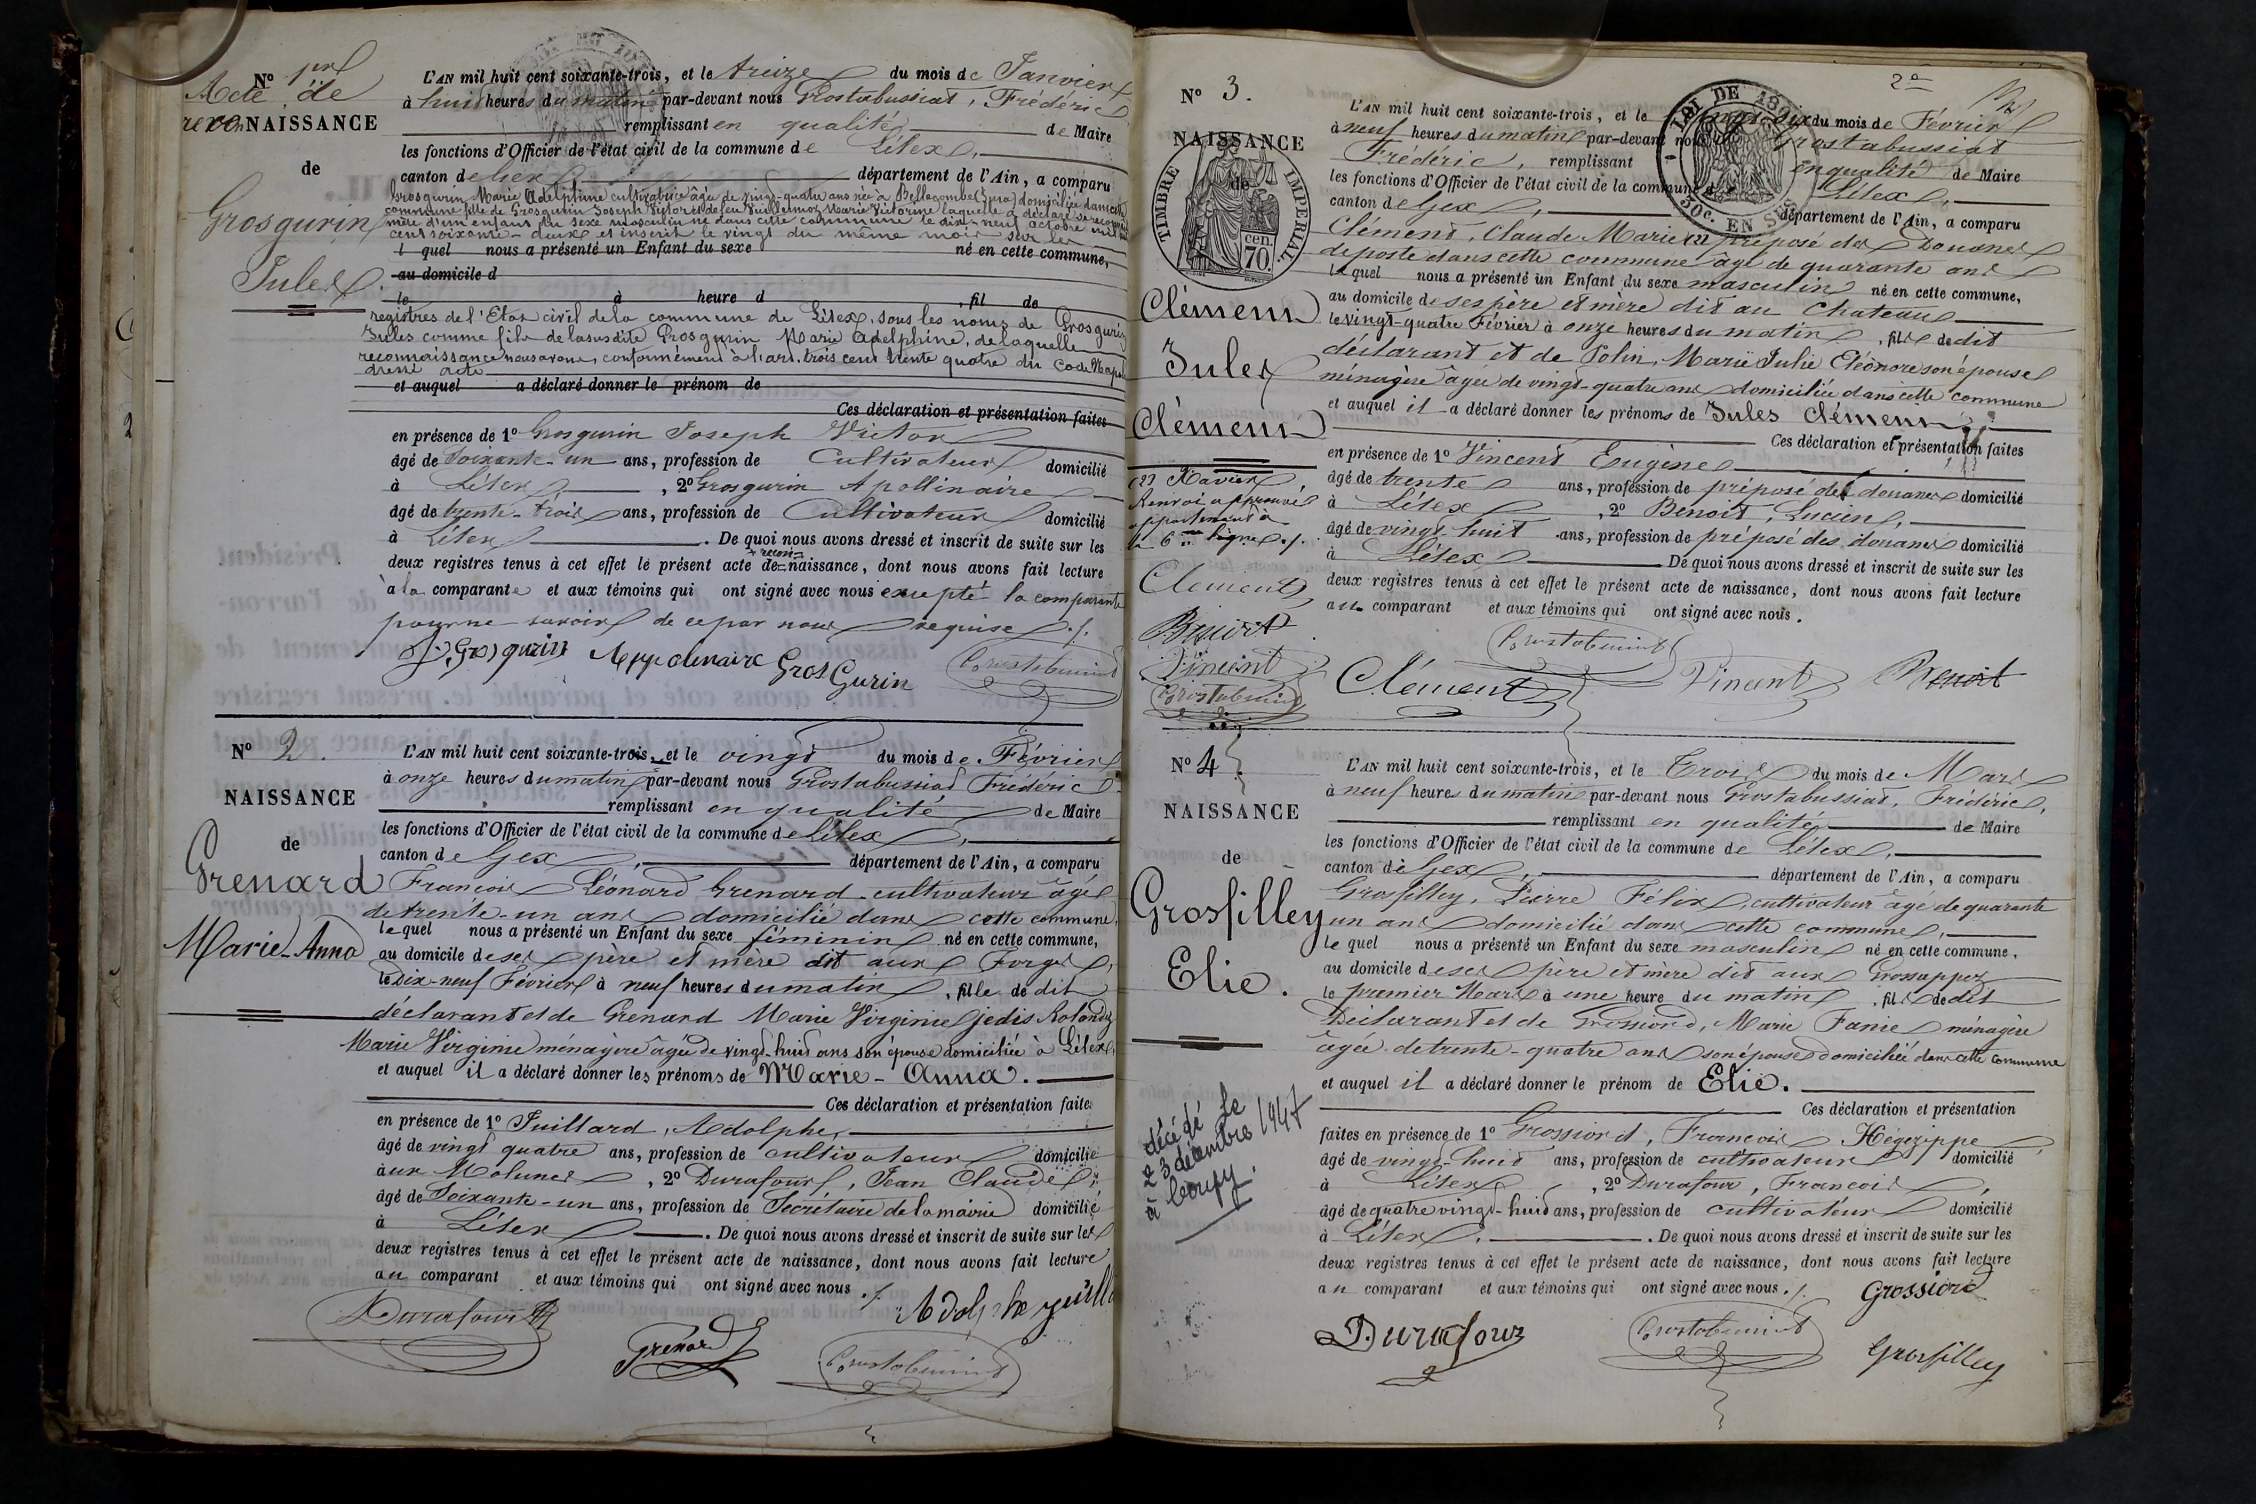 Nº 1er
Acte de
reconNAISSANCE
de
Grosgurin
Jules
L'AN mil huit cent soixante-trois, et le treize du mois de Janvier
à huit heures du matin par-devant nous Grostabussiat, Frédéric
remplissant en qualité de Maire
les fonctions d'Officier de l'état civil de la commune de Lélex,
canton de Gex département de l'Ain, a comparu
Grosgurin Marie Adelphine cultivatrice âgée de vingt-quatre ans née à Bellecombe (Jura) domiciliée dans cette
commune fille de Grosgurin Joseph Victor et de feu Vuillermoz Marie Victorine laquelle a déclaré se reconnaître
mère d'un enfant du sexe masculin né dans cette commune le dix-neuf octobre mil huit
cent soixante-deux et inscrit le vingt du même mois sur les
l quel nous a présenté un Enfant du sexe né en cette commune,
au domicile d
le à heure d , fil de
registres de l'Etat civil de la commune de Lélex, sous les noms de Grosgurin
Jules comme fils de la susdite Grosgurin Marie Adelphine, de laquelle
reconnaissance nous avons, conformément à l'art. trois cent trente quatre du Code Napol
dressé acte
et auquel a déclaré donner le prénom de
Ces déclaration et présentation faites
en présence de 1º Grosgurin Joseph Victor
âgé de Soixante-un ans, profession de Cultivateur domicilié
à Lélex , 2º Grosgurin Apollinaire
âgé de trente-trois ans, profession de Cultivateur domicilié
à Lélex . De quoi nous avons dressé et inscrit de suite sur les
+ recon
deux registres tenus à cet effet le présent acte de naissance, dont nous avons fait lecture
à la comparante et aux témoins qui ont signé avec nous excepté la comparante
pour ne savoir de ce par nous requise ./.
J. Grosgurin Appolinaire GrosGurin Grostabussiat
Nº 2.
NAISSANCE
de
Grenard
Marie-Anna
L'AN mil huit cent soixante-trois, et le vingt du mois de Février
à onze heures du matin par-devant nous Grostabussiat Frédéric
remplissant en qualité de Maire
les fonctions d'Officier de l'état civil de la commune de Lélex,
canton de Gex, département de l'Ain, a comparu
François Léonard Grenard cultivateur âgé
de trente-un ans domicilié dans cette commune,
lequel nous a présenté un Enfant du sexe féminin né en cette commune,
au domicile de ses père et mère dit aux Forges,
le Dix-neuf Février à neuf heures du matin, fille de dit
déclarant et de Grenard Marie Virginie Jedis Rolandez
Marie Virginie ménagère âgée de vingt-huit ans son épouse domiciliée à Lélex,
et auquel il a déclaré donner les prénoms de Marie-Anna.
Ces déclaration et présentation faites
en présence de 1º Juillard, Adolphe,
âgé de vingt quatre ans, profession de cultivateur domicilié
aux Molunes , 2º Durafour, Jean Claude,
âgé de Soixante-un ans, profession de Secrétaire de la mairie domicilié
à Lélex . De quoi nous avons dressé et inscrit de suite sur les
deux registres tenus à cet effet le présent acte de naissance, dont nous avons fait lecture
au comparant et aux témoins qui ont signé avec nous ./.
Durafour Adolphe juilla
Grenard Grostabussiat
2e
Nº 3.
NAISSANCE
de
TIMBRE IMPERIAL.
70 cen.
LOI DE 18
50c. EN SUS
Clément
Jules
Clément
(1) Xavier
Renvoi approuvé
appartenant à
la 6me ligne ./.
Clément
Benoit
Vincent
Grostabussiat
L'AN mil huit cent soixante-trois, et le vingt-six du mois de Février
à neuf heures du matin par-devant nous Grostabussiat
Frédéric, remplissant en qualité de Maire
les fonctions d'Officier de l'état civil de la commune de Lélex,
canton de Gex, département de l'Ain, a comparu
Clément, Claude Marie (1) préposé des Douanes
de poste dans cette commune âgé de quarante ans
lequel nous a présenté un Enfant du sexe masculin né en cette commune,
au domicile de ses père et mère dit au Chateau
le vingt-quatre Février à onze heures du matin, fils de dit
déclarant et de Polin, Marie Julie Eléonore son épouse
ménagère âgée de vingt-quatre ans domiciliée dans cette commune
et auquel il a déclaré donner les prénoms de Jules Clément
Ces déclaration et présentation faites
en présence de 1º Vincent Eugène
âgé de trente ans, profession de préposé des douanes domicilié
à Lélex , 2º Benoit, Lucien,
âgé de vingt-huit ans, profession de préposé des douanes domicilié
à Lélex De quoi nous avons dressé et inscrit de suite sur les
deux registres tenus à cet effet le présent acte de naissance, dont nous avons fait lecture
au comparant et aux témoins qui ont signé avec nous.
Grostabussiat
Clément Vincent Benoit
Nº 4.
NAISSANCE
de
Grosfilley
Elie.
décédé le
23 décembre 1947
à Coupy.
L'AN mil huit cent soixante-trois, et le Trois du mois de Mars
à neuf heures du matin par-devant nous Grostabussiat, Frédéric,
remplissant en qualité de Maire
les fonctions d'Officier de l'état civil de la commune de Lélex,
canton de Gex, département de l'Ain, a comparu
Grosfilley, Pierre Félix, cultivateur âgé de quarante
un ans domicilié dans cette commune,
le quel nous a présenté un Enfant du sexe masculin né en cette commune,
au domicile de ses père et mère dit aux Grossappez
le premier Mars à une heure du matin, fils de dit
Déclarant et de Grossiord, Marie Fanie ménagère
âgée de trente-quatre ans son épouse domiciliée dans cette commune
et auquel il a déclaré donner le prénom de Elie.
Ces déclaration et présentation
faites en présence de 1º Grossiord, François Hégezippe,
âgé de vingt-huit ans, profession de cultivateur domicilié
à Lélex , 2º Durafour, François,
âgé de quatre vingt-huit ans, profession de cultivateur domicilié
à Lélex, . De quoi nous avons dressé et inscrit de suite sur les
deux registres tenus à cet effet le présent acte de naissance, dont nous avons fait lecture
au comparant et aux témoins qui ont signé avec nous ./. Grossiord
Durafour Grostabussiat Grosfilley